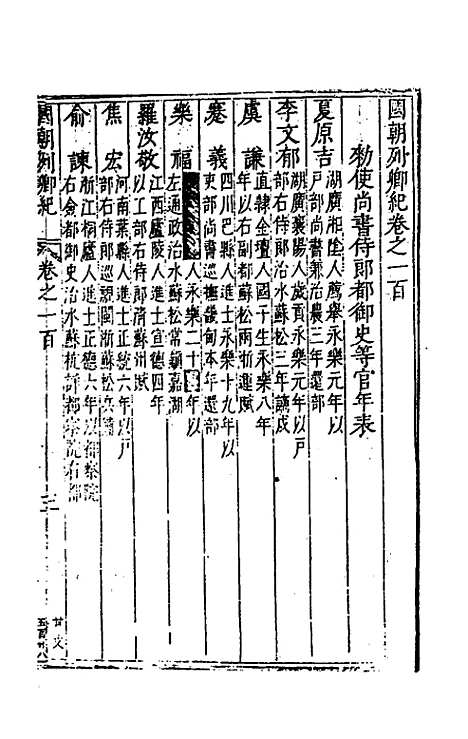 國朝列卿紀卷之一百
勅使尚書侍郎都御史等官年表
夏原吉
湖廣湘陰人薦舉永樂元年以
戶部尚書兼治農三年還部
李文郁
湖廣襄陽人歲貢永樂元年以戶
部右侍郎治水蘇松三年謫戍
虞謙
直隸金壇人國子生永樂八年
年以右副都御史蘇松兩浙運賦
蹇義
四川巴縣人進士永樂十九年以
吏部尚書巡撫畿甸本年還部
樂福
人永樂二十年以
左通政治水蘇松常鎮嘉湖
羅汝敬
江西廬陵人進士宣德四年
以工部右侍郎清蘇州賦
焦宏
河南葉縣人進士正統六年以戶
部右侍郎巡視閩浙蘇松兵備
俞諫
浙江桐廬人進士正德六年以都察院
右僉都御史治水蘇杭詳都察院右都
國朝列卿紀
卷之一百
一
廿文
五百廿八